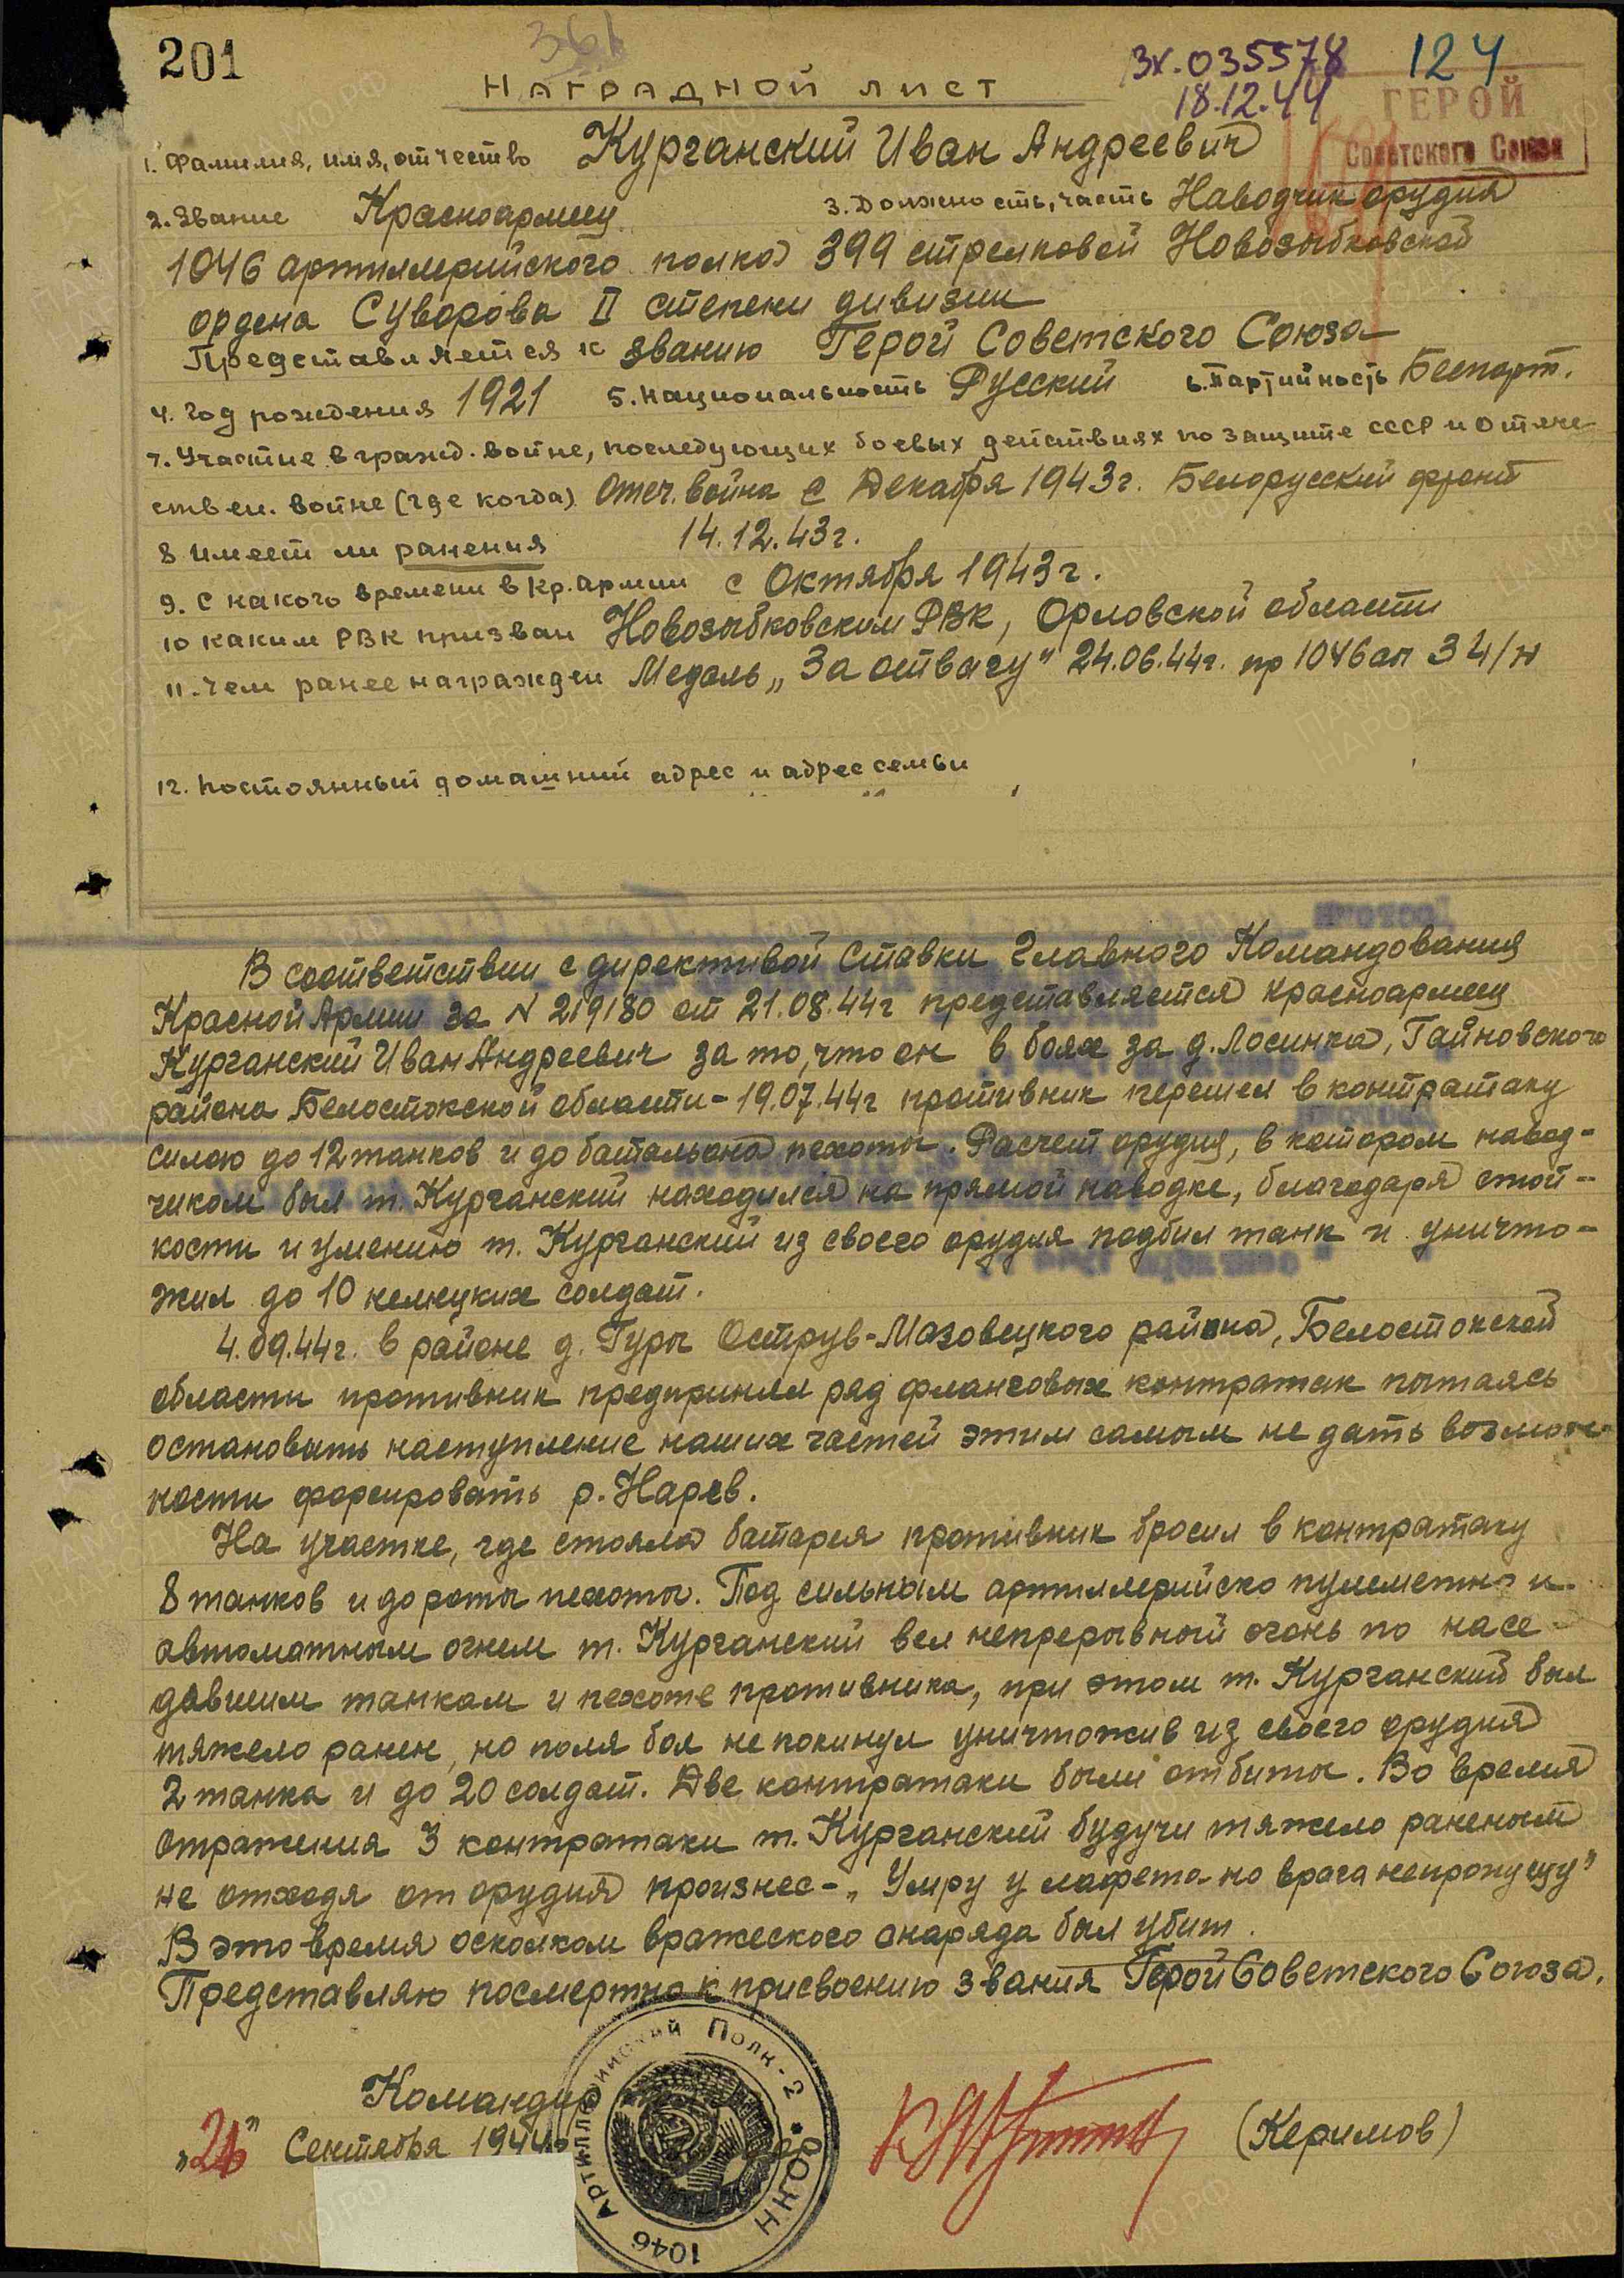 201
361
Зх. 035578
18.12.44
124
ГЕРОЙ
Советского Союза
НАГРАДНОЙ ЛИСТ
1. Фамилия, имя, отчество Курганский Иван Андреевич
2. Звание Красноармеец 3. Должность, часть Наводчик орудия
1046 артиллерийского полка 399 стрелковой Новозыбковской
ордена Суворова II степени дивизии
Представляется к званию Герой Советского Союза
4. Год рождения 1921 5. Национальность Русский 6. Партийность Беспарт.
7. Участие в гражд. войне, последующих боевых действиях по защите СССР и Отече-
ствен. войне (где когда) Отеч. война с Декабря 1943 г. Белорусский фронт
8 Имеет ли ранения 14.12.43 г.
9. С какого времени в Кр. Армии с Октября 1943 г.
10 каким РВК призван Новозыбковским РВК, Орловской области
11. Чем ранее награжден Медаль „За отвагу" 24.06.44 г. пр 1046 ап 34/н
12. Постоянный домашний адрес и адрес семьи
В соответствии с директивой Ставки Главного Командования
Красной Армии за N 219180 от 21.08.44 г представляется красноармеец
Курганский Иван Андреевич за то, что он в боях за д. Лосинка, Гайновского
района Белостокской области - 19.07.44 г противник перешел в контратаку
силою до 12 танков и до батальона пехоты. Расчет орудия, в котором навод-
чиком был т. Курганский находился на прямой наводке, благодаря стой-
кости и умению т. Курганский из своего орудия подбил танк и уничто-
жил до 10 немецких солдат.
4.09.44 г. в районе д. Гуры Острув-Мазовецкого района, Белостокской
области противник предпринял ряд фланговых контратак пытаясь
остановить наступление наших частей этим самым не дать возмож-
ности форсировать р. Нарев.
На участке, где стояла батарея противник бросил в контратаку
8 танков и до роты пехоты. Под сильным артиллерийско пулеметно и
автоматным огнем т. Курганский вел непрерывный огонь по насе-
давшим танкам и пехоте противника, при этом т. Курганский был
тяжело ранен, но поля боя не покинул уничтожив из своего орудия
2 танка и до 20 солдат. Две контратаки были отбиты. Во время
отражения 3 контратаки т. Курганский будучи тяжело раненым
не отходя от орудия произнес - „Умру у лафета но врага не пропущу"
В это время осколком вражеского снаряда был убит.
Представляю посмертно к присвоению звания Герой Советского Союза.
Командир
„21" Сентября 1944
(Керимов)
1046 Артиллерийский Полк - 2 * НКО